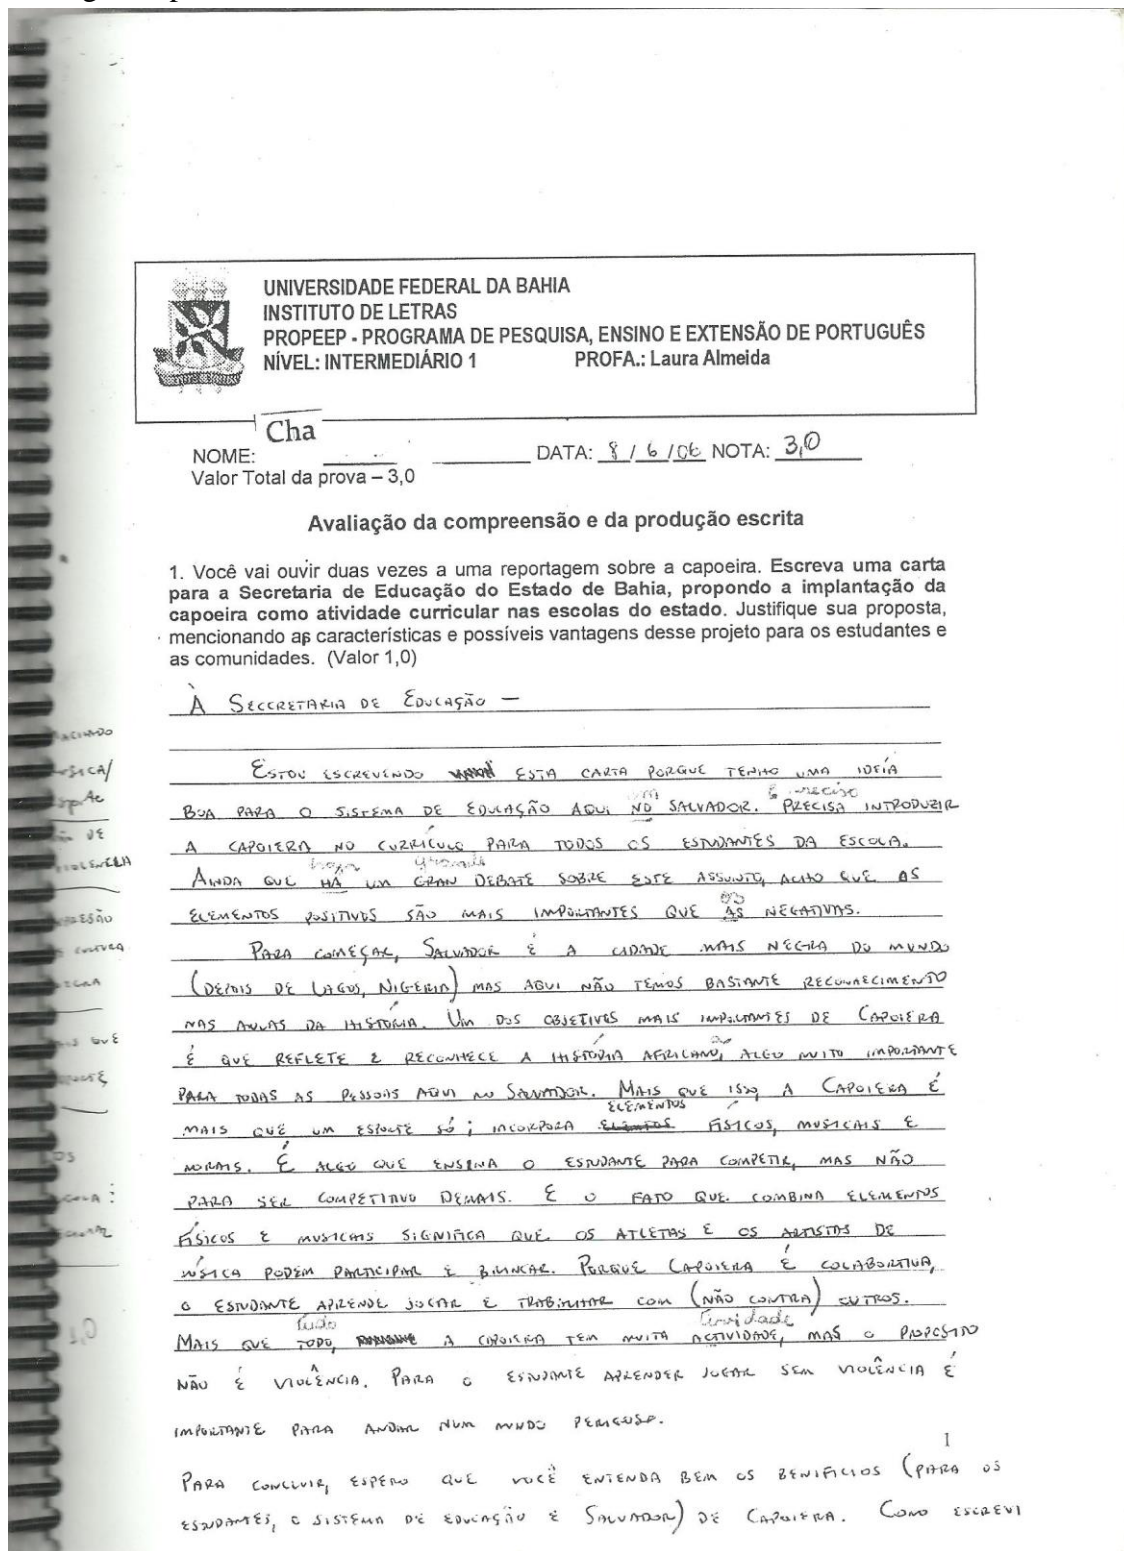 UNIVERSIDADE FEDERAL DA BAHIA
INSTITUTO DE LETRAS
PROPEEP - PROGRAMA DE PESQUISA, ENSINO E EXTENSÃO DE PORTUGUÊS
NÍVEL: INTERMEDIÁRIO 1 PROFA.: Laura Almeida
Cha
NOME: DATA: 8 / 6 / 06 NOTA: 3,0
Valor Total da prova – 3,0
Avaliação da compreensão e da produção escrita
1. Você vai ouvir duas vezes a uma reportagem sobre a capoeira. Escreva uma carta
para a Secretaria de Educação do Estado de Bahia, propondo a implantação da
capoeira como atividade curricular nas escolas do estado. Justifique sua proposta,
mencionando as características e possíveis vantagens desse projeto para os estudantes e
as comunidades. (Valor 1,0)
À SECCRETARIA DE EDUCAÇÃO —
ESTOU ESCREVENDO ESTA CARTA PORQUE TENHO UMA IDEÍA
em É preciso
BOA PARA O SISTEMA DE EDUCAÇÃO AQUI NO SALVADOR. PRECISA INTRODUZIR
A CAPOIERA NO CURRÍCULO PARA TODOS OS ESTUDANTES DA ESCOLA.
haja grande
AINDA QUE HÁ UM GRAN DEBATE SOBRE ESTE ASSUNTO, ACHO QUE OS
os
ELEMENTOS POSITIVOS SÃO MAIS IMPORTANTES QUE AS NEGATIVAS.
PARA COMEÇAR, SALVADOR É A CIDADE MAIS NEGRA DO MUNDO
(DEPOIS DE LAGOS, NIGERIA) MAS AQUI NÃO TEMOS BASTANTE RECONHECIMENTO
NAS AULAS DA HISTÓRIA. UM DOS OBJETIVOS MAIS IMPORTANTES DE CAPOIERA
É QUE REFLETE E RECONHECE A HISTÓRIA AFRICANO, ALGO MUITO IMPORTANTE
PARA TODAS AS PESSOAS AQUI NO SALVADOR. MAIS QUE ISSO, A CAPOIERA É
ELEMENTOS
MAIS QUE UM ESPORTE SÓ; INCORPORA FÍSICOS, MUSICAIS E
MORAIS. É ALGO QUE ENSINA O ESTUDANTE PARA COMPETIR, MAS NÃO
PARA SER COMPETITIVO DEMAIS. E O FATO QUE COMBINA ELEMENTOS
FÍSICOS E MUSICAIS SIGNIFICA QUE OS ATLETAS E OS ARTISTAS DE
MÚSICA PODEM PARTICIPAR E BRINCAR. PORQUE CAPOIERA É COLABORTIVA,
O ESTUDANTE APRENDE JOGAR E TRABALHAR COM (NÃO CONTRA) OUTROS.
tudo atividade
MAIS QUE TODO, A CAPOIERA TEM MUITA ACTIVIDADE, MAS O PROPÓSITO
NÃO É VIOLÊNCIA. PARA O ESTUDANTE APRENDER JOGAR SEM VIOLÊNCIA É
IMPORTANTE PARA ANDAR NUM MUNDO PERIGOSO.
1
PARA CONCLUIR, ESPERO QUE VOCÊ ENTENDA BEM OS BENIFICIOS (PARA OS
ESTUDANTES, O SISTEMA DE EDUCAÇÃO E SALVADOR) DE CAPOIERA. COMO ESCREVI